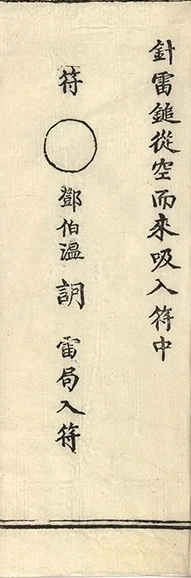 針雷鎚從空而來吸入符中
符 ○ 鄧伯温 詷 雷局入符